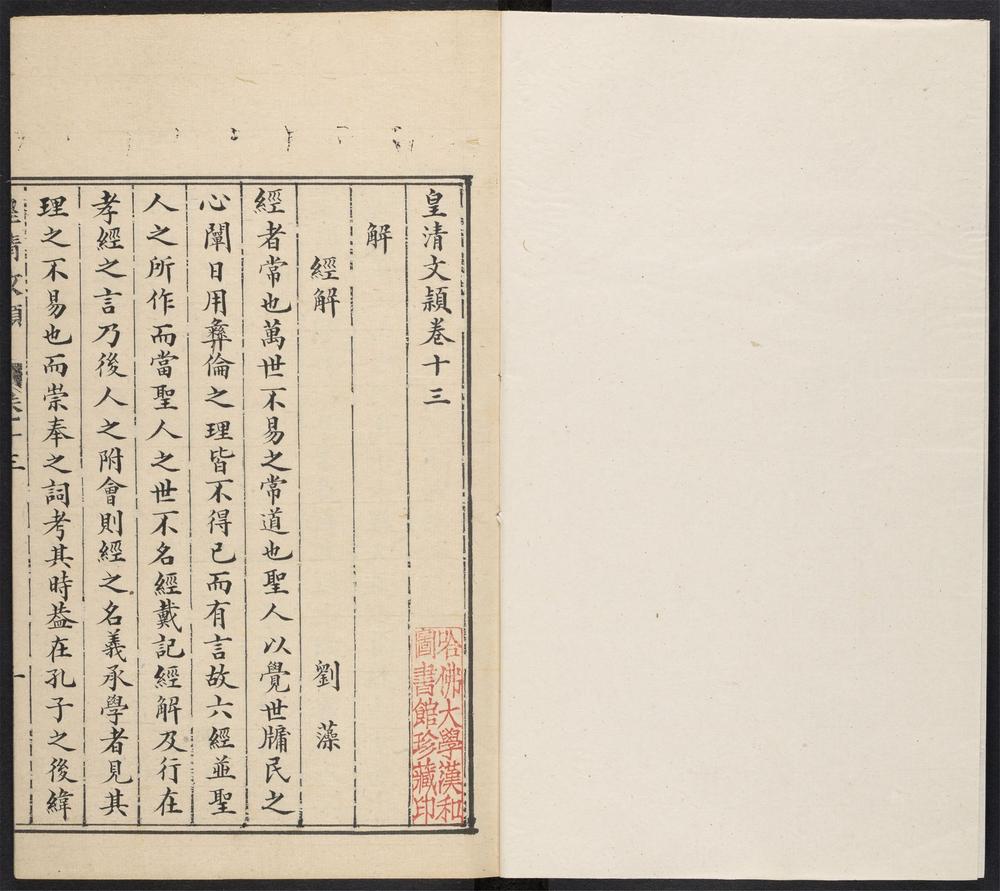 皇清文穎卷十三
哈佛大學漢和
圖書館珍藏印
解
經解
劉藻
經者常也萬世不易之常道也聖人以覺世牗民之
心闡日用彝倫之理皆不得已而有言故六經並聖
人之所作而當聖人之世不名經戴記經解及行在
孝經之言乃後人之附會則經之名義承學者見其
理之不易也而崇奉之詞考其時葢在孔子之後緯
皇清文穎
卷十三
一